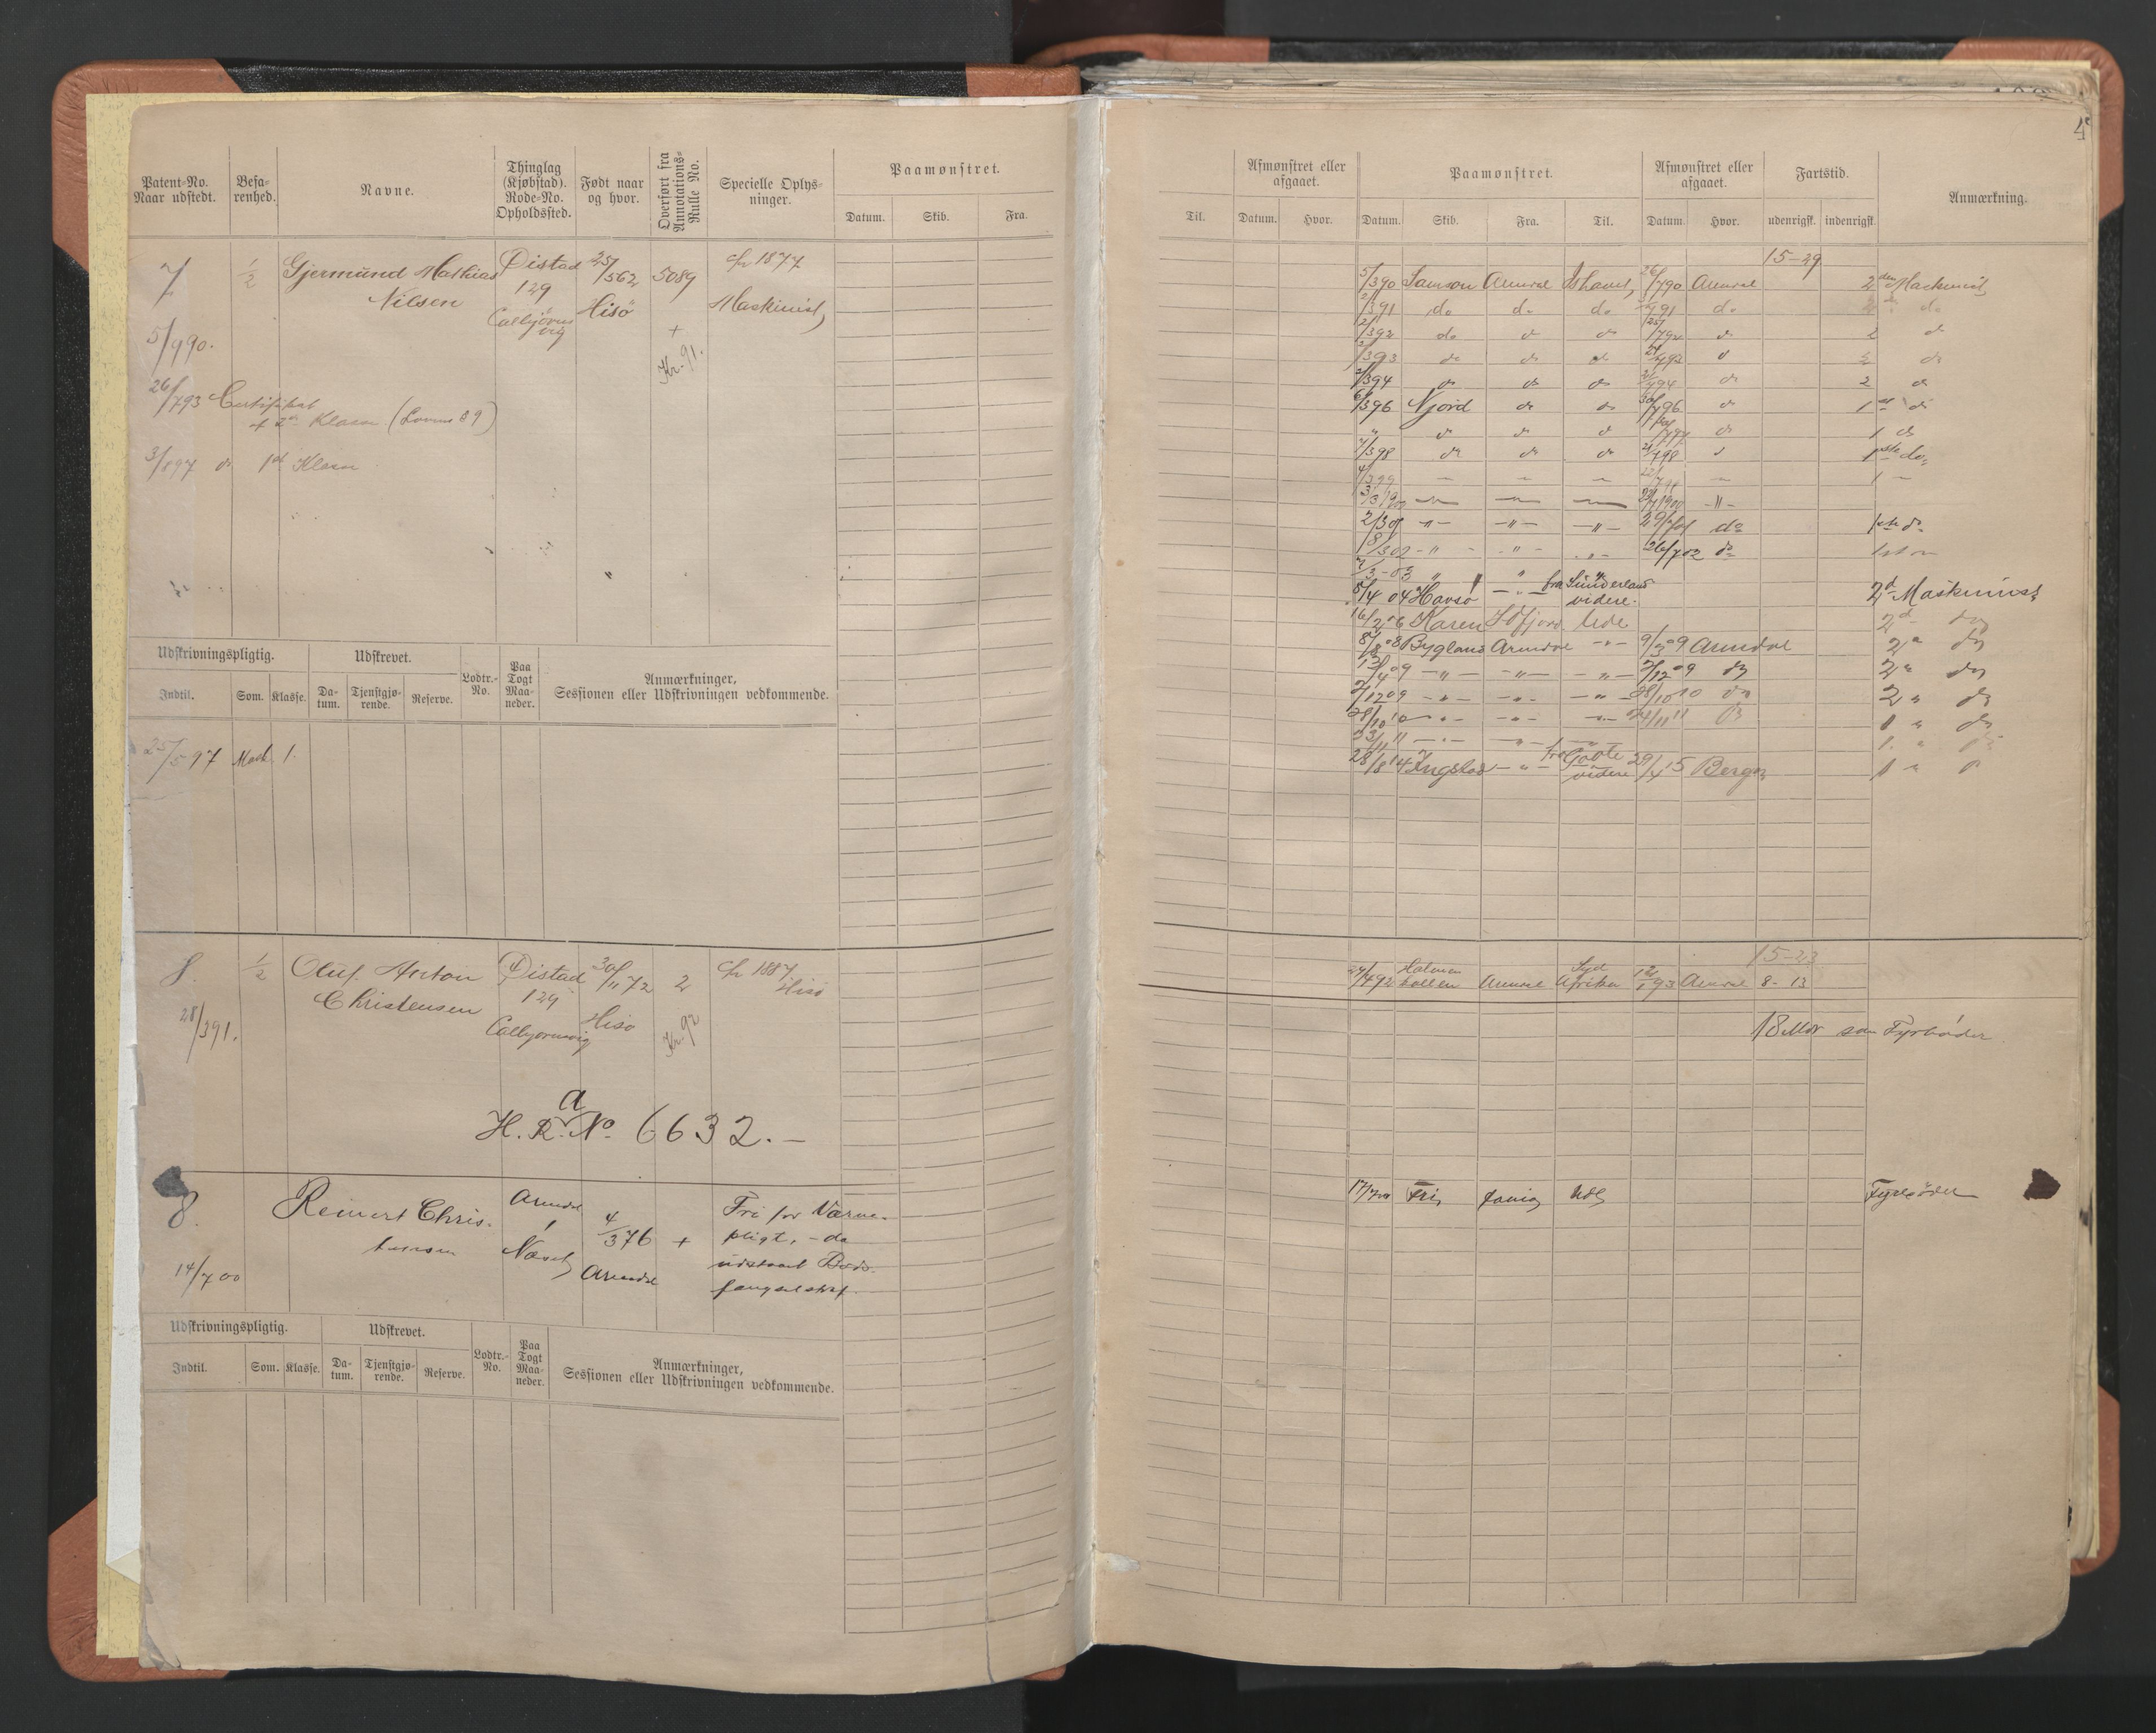 4
Patent-No. Naar udstedt.
Besa-renhed.
Navne.
Thinglag (Kjøbstad). Rode-No. Opholdssted.
Født naar og hvor.
Overført fra Annotations-Rulle No.
Specielle Oplys-ninger.
Paamønstret.
Datum. Skib. Fra.
7 1/2 Gjermund Mathias Øistad 25/5 62 5089 1877
Nilsen 129 Hisø Maskinist
Colbjørns vig +
5/9 90. Kr. 91.
26/7 93 Certifikat
2 Klasse
3/8 97 do 1ste Klasse
Udskrivningspligtig. Udskrevet. Lodtr.-No. Paa Togt Maa-neder. Anmærkninger, Sessionen eller Udskrivningen vedkommende.
Indtil. Som. Klasse. Da-tum. Tjenstgjø-rende. Reserve.
25/5 97 Mask. 1.
8. 1/2 Oluf Anton Øistad 30/11 72 2 1887
Christensen 129 Hisø Hisø
28/3 91. Colbjørnsvig Kr. 92
a
H. R. No. 6632. –
8. Reinert Chris- Arendal 4/3 76 + Fri for Værne-
tensen 1 Arendal pligt, – da
14/7 00 udstaaet Bods-
Udskrivningspligtig. Udskrevet. Lodtr.-No. Paa Togt Maa-neder. Anmærkninger, Sessionen eller Udskrivningen vedkommende.
Indtil. Som. Klasse. Da-tum. Tjenstgjø-rende. Reserve.
Til.
Afmønstret eller afgaaet.
Datum. Hvor.
Paamønstret.
Datum. Skib. Fra. Til.
Afmønstret eller afgaaet.
Datum. Hvor.
Fartstid.
udenrigsk. indenrigsk.
Anmærkning.
15-29
5/3 90 Samson Arendal Ishavet, 26/7 90 Arendal 2den Maskinist
2/3 91 do do do do do
2/3 92 do do do do 2 do
3 93 do do do do 2 do
2/3 94 do do do do 2 do
6/3 96 Njord do do 30/7 96 do 1st do
" do do do do 1 do
7/3 98 do do do do 1ste do
4/3 99
3/3 1900 — — — 1900 –"–
2/3 01 –"– –"– –"– 29/7 01 do 1ste do
8/3 02 –"– –"– 26/7 02 do
7/3 – 03 " " "
8/4 04 Havsø –"– fra Sunderland videre. 2d Maskinist
16/2 06 Karen Ude 2d do
8/8 08 Bygland Arendal –"– 9/3 09 Arendal 2d do
13/4 09 –"– –"– –"– 2/12 09 do 2" do
2/12 09 –"– –"– –"– 28/10 10 do 2" do
28/10 10 –"– –"– –"– 24/11 11 do 1" do
23/11 11 –"– –"– 1. "
28/8 14 Ingstad –"– fra Goole videre 29/4 15 Bergen 1 "
15-23
24/4 92 Holmenkollen Arendal Syd Afrika 12/1 93 Arendal 8-13
18 Mdr som Fyrbøder
17/7 00 Fri Udl Fyrbøder